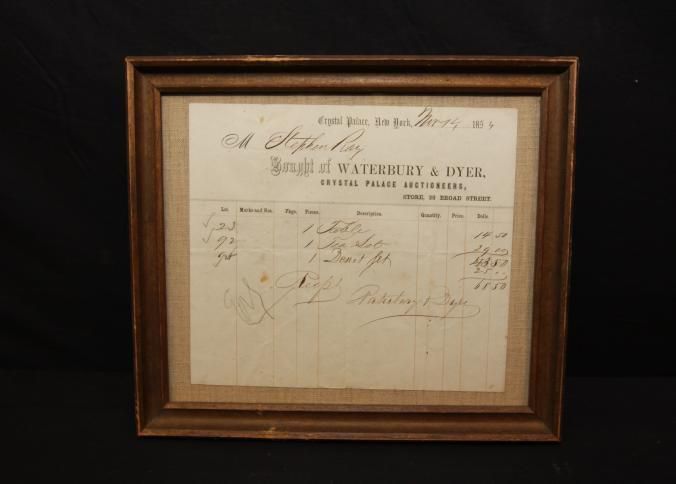 Crystal Palace, New York, Nov 14 1854
M Stephen Ray
Bought of WATERBURY & DYER,
CRYSTAL PALACE AUCTIONEERS,
STORE, 23 BROAD STREET.
Lot. Marks and Nos. Pkgs. Pieces. Description. Quantity. Price. Dolls.
23 1 Table 14 50
92 1 Tea Set 29 00
43 50
1 25 00
68 50
Waterbury & Dyer